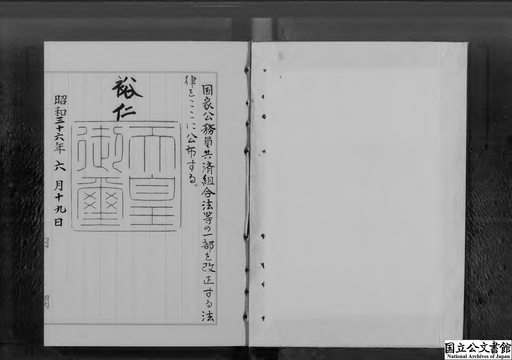 国家公務員共済組合法等の一部を改正する法
律をここに公布する。
裕仁
天皇
御璽
昭和三十六年六月十九日
国立公文書館
National Archives of Japan